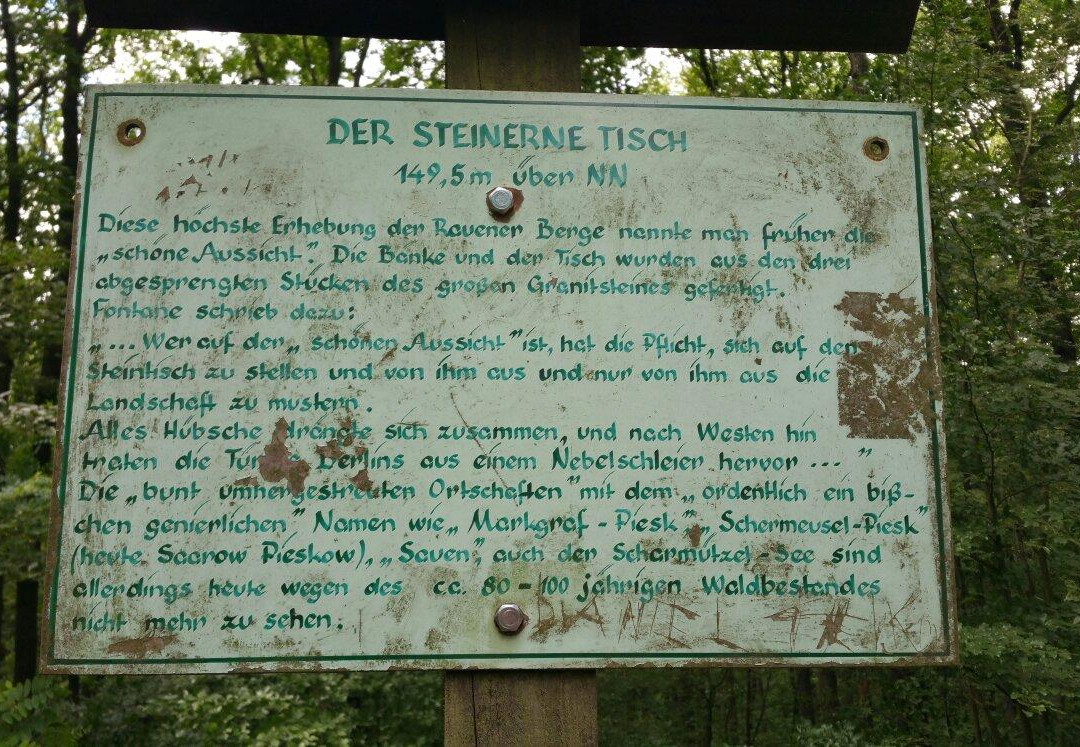 DER STEINERNE TISCH
149,5 m über NN
Diese höchste Erhebung der Rauener Berge nannte man früher die
„schöne Aussicht". Die Bänke und der Tisch wurden aus den drei
abgesprengten Stücken des großen Granitsteines gefertigt.
Fontane schrieb dazu:
„... Wer auf der „schönen Aussicht" ist, hat die Pflicht, sich auf den
Steintisch zu stellen und von ihm aus und nur von ihm aus die
Landschaft zu mustern.
Alles Hübsche drängte sich zusammen, und nach Westen hin
traten die Türme Berlins aus einem Nebelschleier hervor ... "
Die „bunt umhergestreuten Ortschaften" mit dem „ordentlich ein biß-
chen genierlichen" Namen wie „Markgraf - Piesk" „Schermeusel-Piesk"
(heute Saarow Pieskow), „Sauen", auch der Scharmützel - See sind
allerdings heute wegen des ca. 80 - 100 jährigen Waldbestandes
nicht mehr zu sehen.
DANIEL